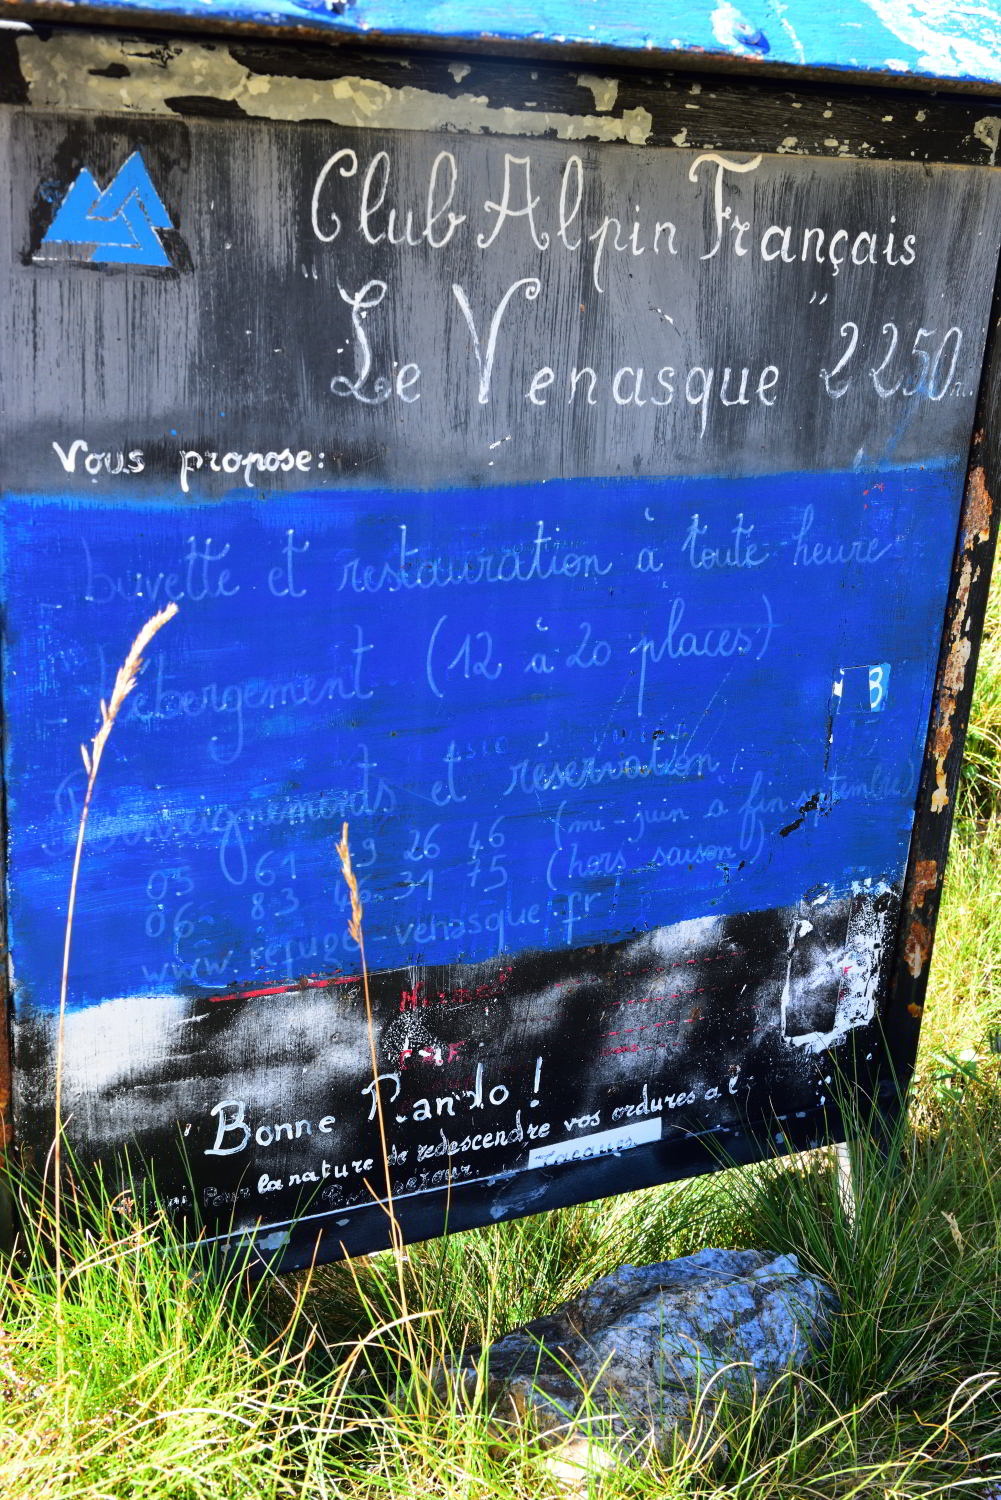 Club Alpin Français
"Le Venasque" 2250m.
Vous propose:
buvette et restauration à toute heure
hébergement (12 à 20 places)
Renseignements et réservation
05 61 79 26 46 (mi-juin à fin septembre)
06 83 46 31 75 (hors saison)
www.refuge-venasque.fr
Bonne Rando !
la nature de redescendre vos ordures a l'
Jacques